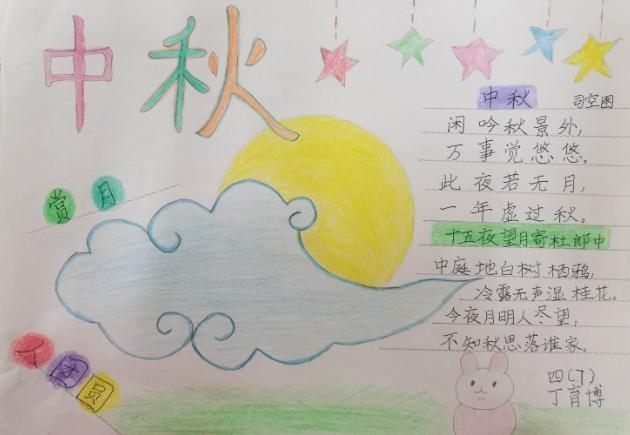 中秋
中秋 司空图
闲吟秋景外，
万事觉悠悠。
此夜若无月，
一年虚过秋。
十五夜望月寄杜郎中
中庭地白树栖鸦，
冷露无声湿桂花。
今夜月明人尽望，
不知秋思落谁家。
四(7)
丁育博
赏月
团圆